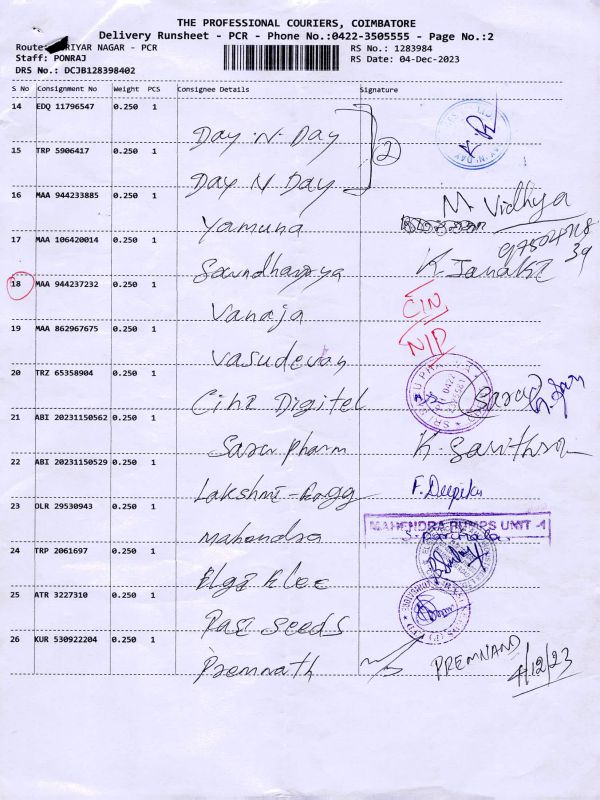 THE PROFESSIONAL COURIERS, COIMBATORE
Delivery Runsheet - PCR - Phone No.:0422-3505555 - Page No.:2
Route: RIYAR NAGAR - PCR
RS No.: 1283984
Staff: PONRAJ
RS Date: 04-Dec-2023
DRS No.: DCJB128398402
S No Consignment No Weight PCS Consignee Details Signature
14 EDQ 11796547 0.250 1 Day N Day
2
15 TRP 5906417 0.250 1 Day N Day
16 MAA 944233885 0.250 1 Yamuna M. Vidhya
17 MAA 106420014 0.250 1 Soundharya K. Janaki
39
18 MAA 944237232 0.250 1 Vanaja CIN
19 MAA 862967675 0.250 1 Vasudevan N/D
20 TRZ 65358904 0.250 1 Cihi Digitel
21 ABI 20231150562 0.250 1 Saru Pharm K. Savithra
22 ABI 20231150529 0.250 1 Lakshmi F. Deepika
23 DLR 29530943 0.250 1 Mahendra MAHENDRA PUMPS UNIT -1
24 TRP 2061697 0.250 1 Elgi Elec
25 ATR 3227310 0.250 1 Rasi Seeds
26 KUR 530922204 0.250 1 Premnath PREMNAND
4/12/23